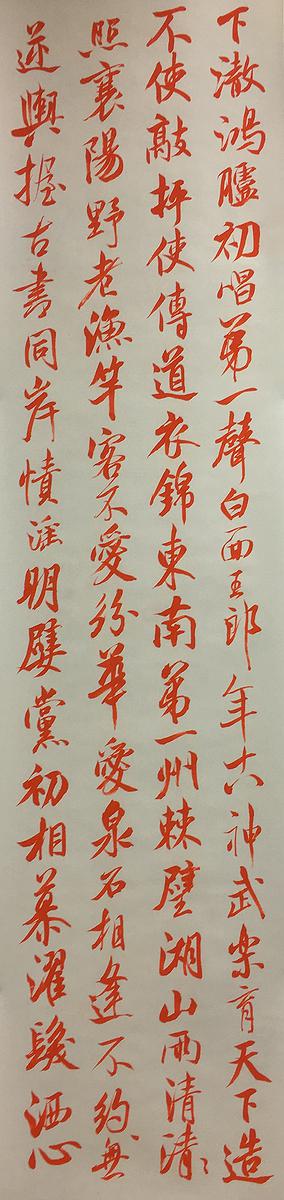 下澈鴻臚初唱第一聲白面玉郎年十八神武樂育天下造
不使敲枰使傳道衣錦東南第一州棘璧湖山兩清清
照襄陽野老漁竿客不愛紛華愛泉石相逢不約無
逆輿握古書同岸幘淫明嬖黨初相慕濯髮洒心